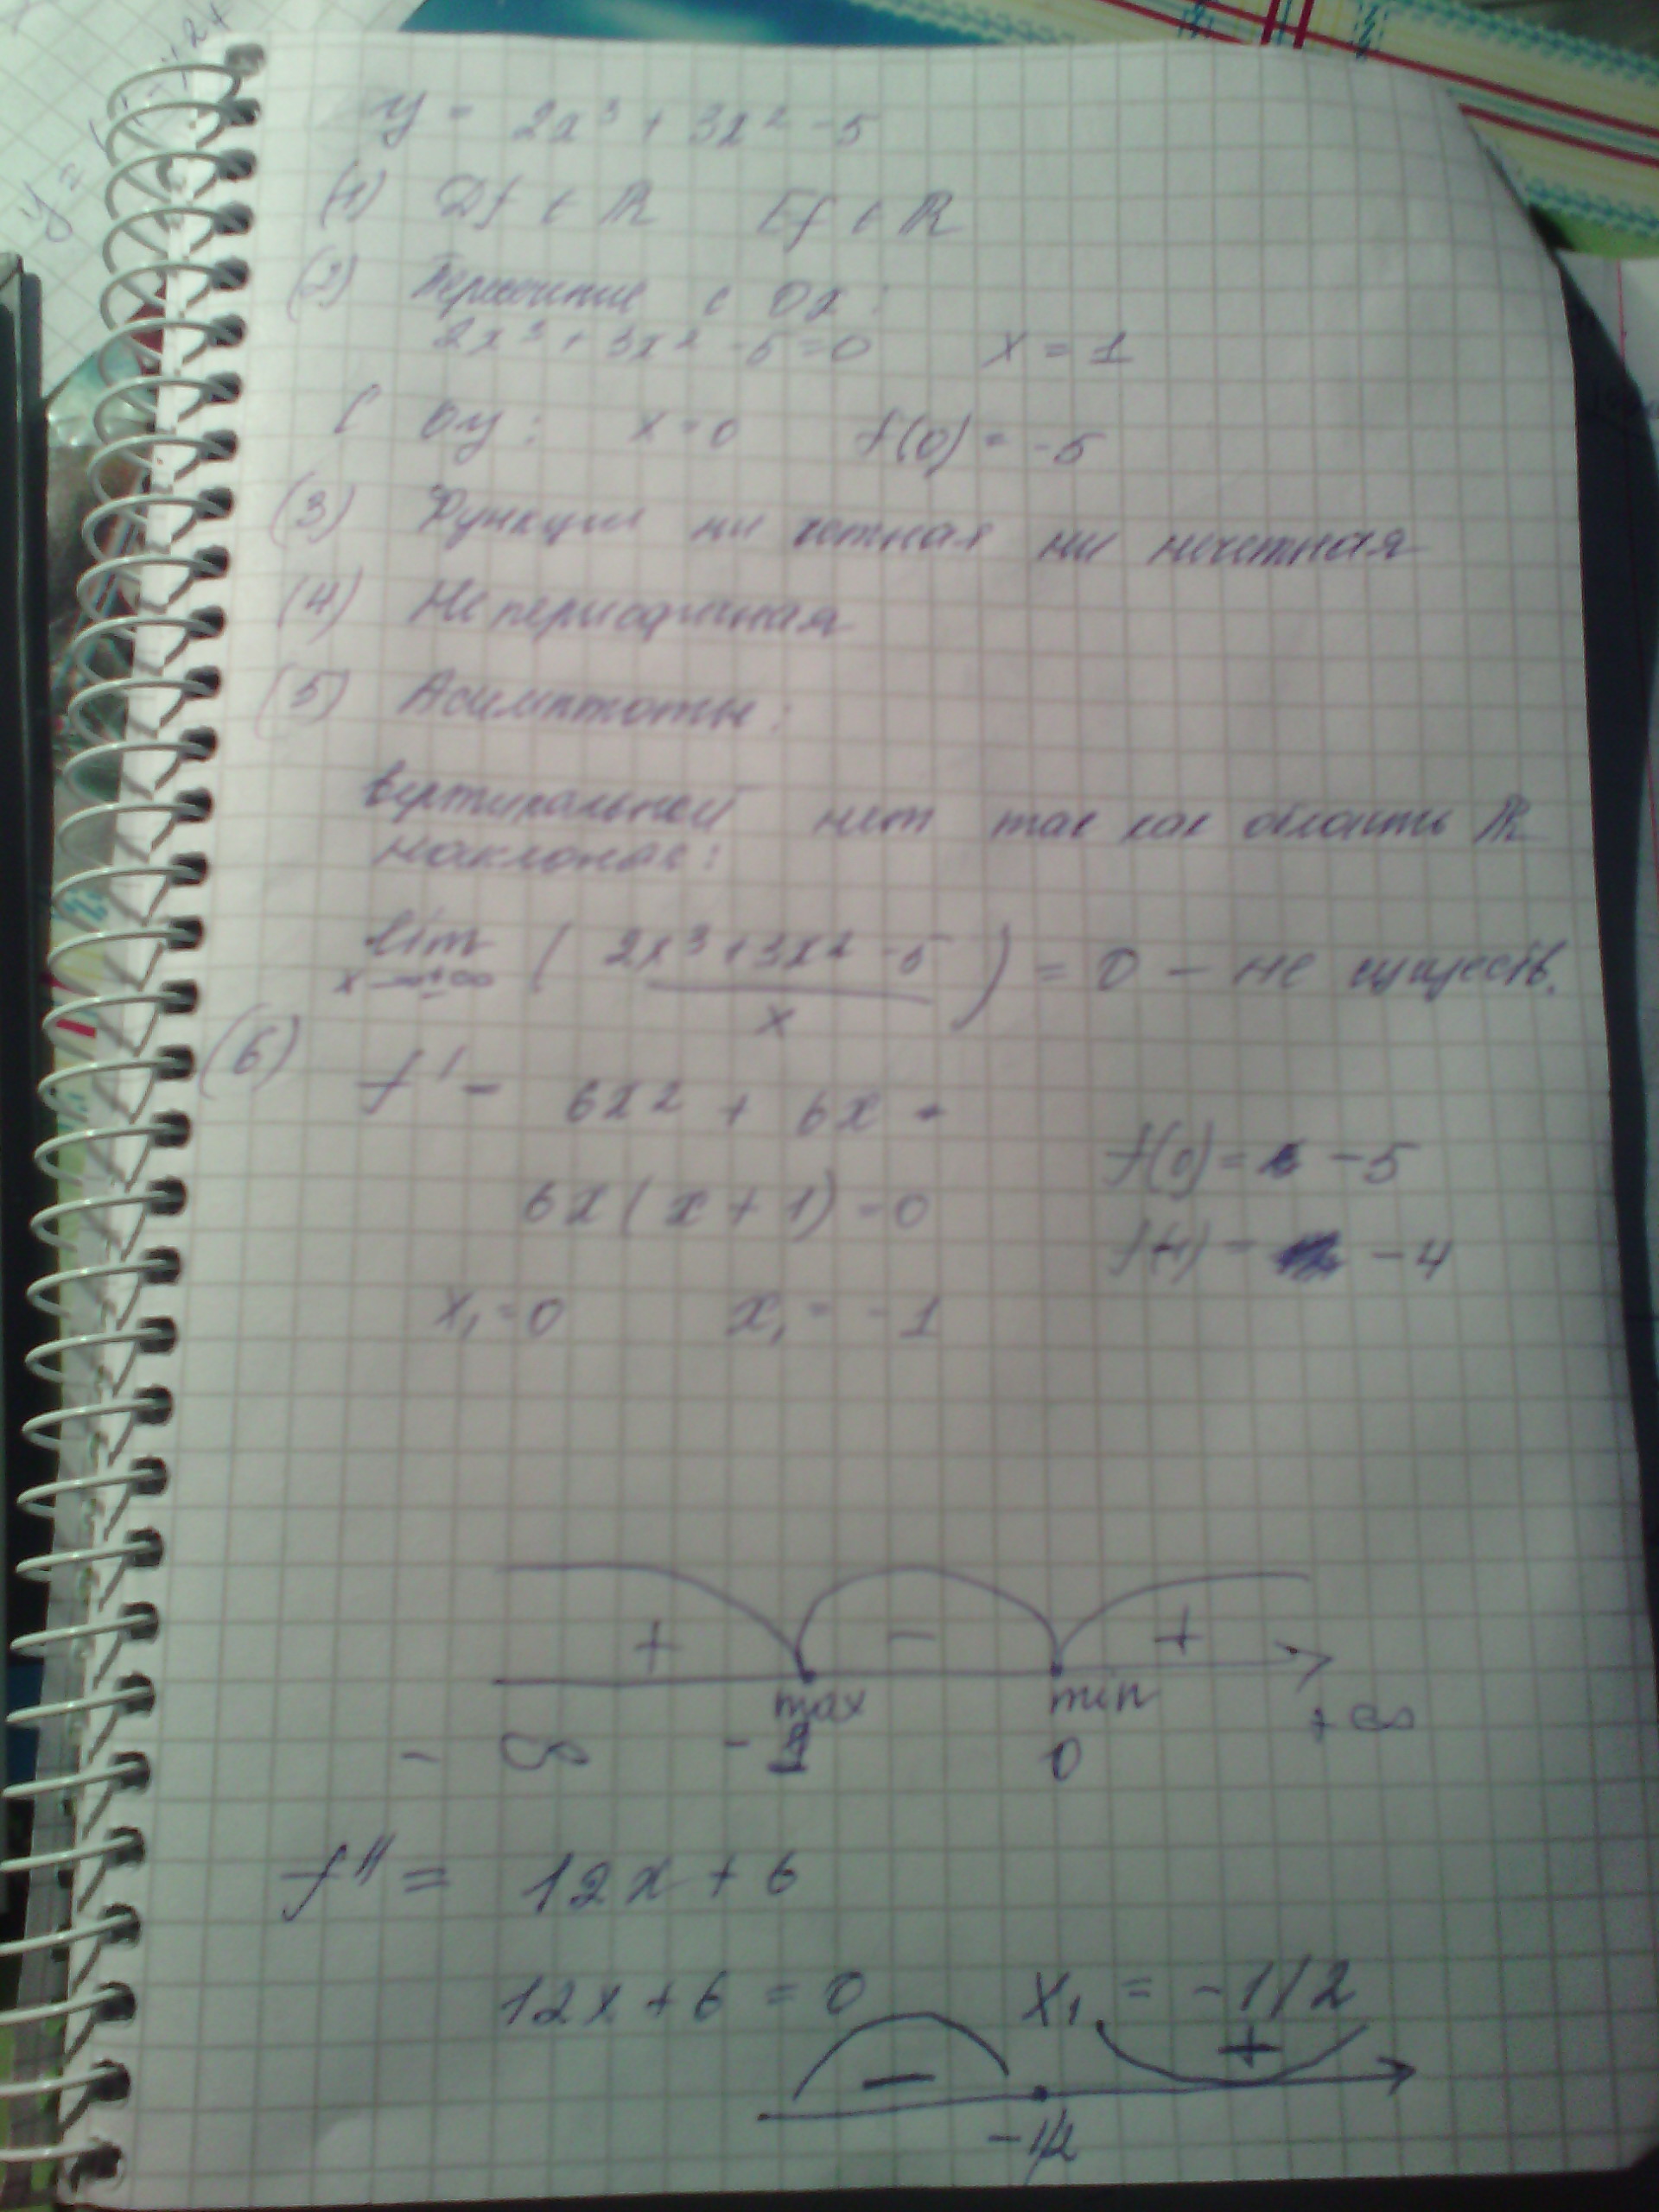 y = 2x³ + 3x² - 5
(1) Df ∈ ℝ Ef ∈ ℝ
(2) Пересечение с OX:
2x³ + 3x² - 5 = 0 x = 1
С Oy: x = 0 f(0) = -5
(3) Функция ни четная ни нечетная
(4) Не периодичная
(5) Асимптоты:
вертикальной нет так как область ℝ
наклоная:
lim x→±∞ ( (2x³ + 3x² - 5) / x ) = 0 - не существ.
(6) f' = 6x² + 6x =
f(0) = -5
6x(x + 1) = 0
f(-1) = -4
x₁ = 0 x₁ = -1
+ - +
max min
- ∞ -1 0 +∞
f'' = 12x + 6
12x + 6 = 0 x₁ = -1/2
- +
-1/2